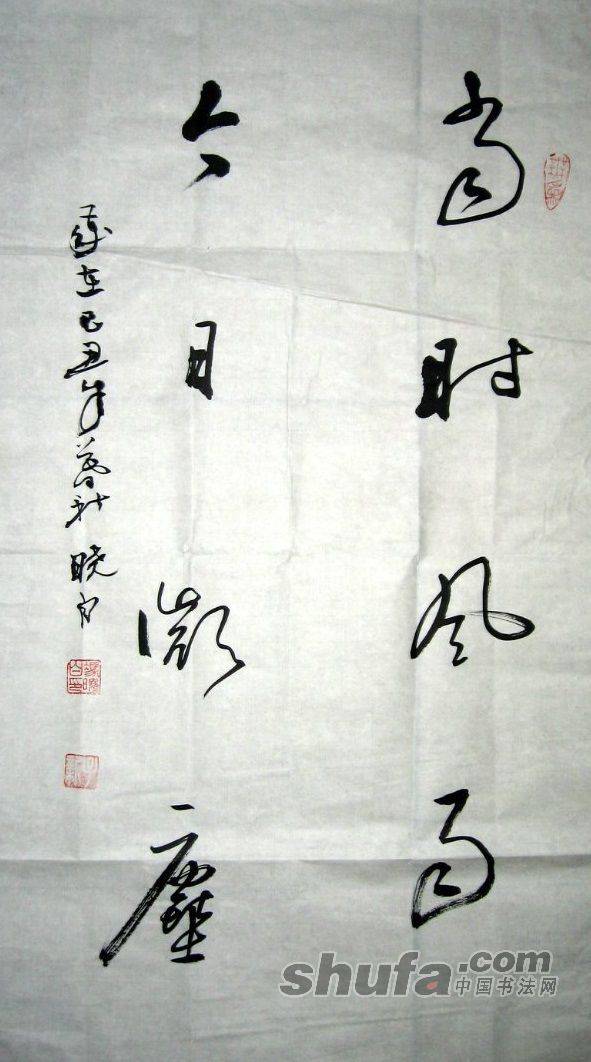 当时风雨
今日微尘
岁在己丑年暮秋 晓白
shufa.com
中国书法网